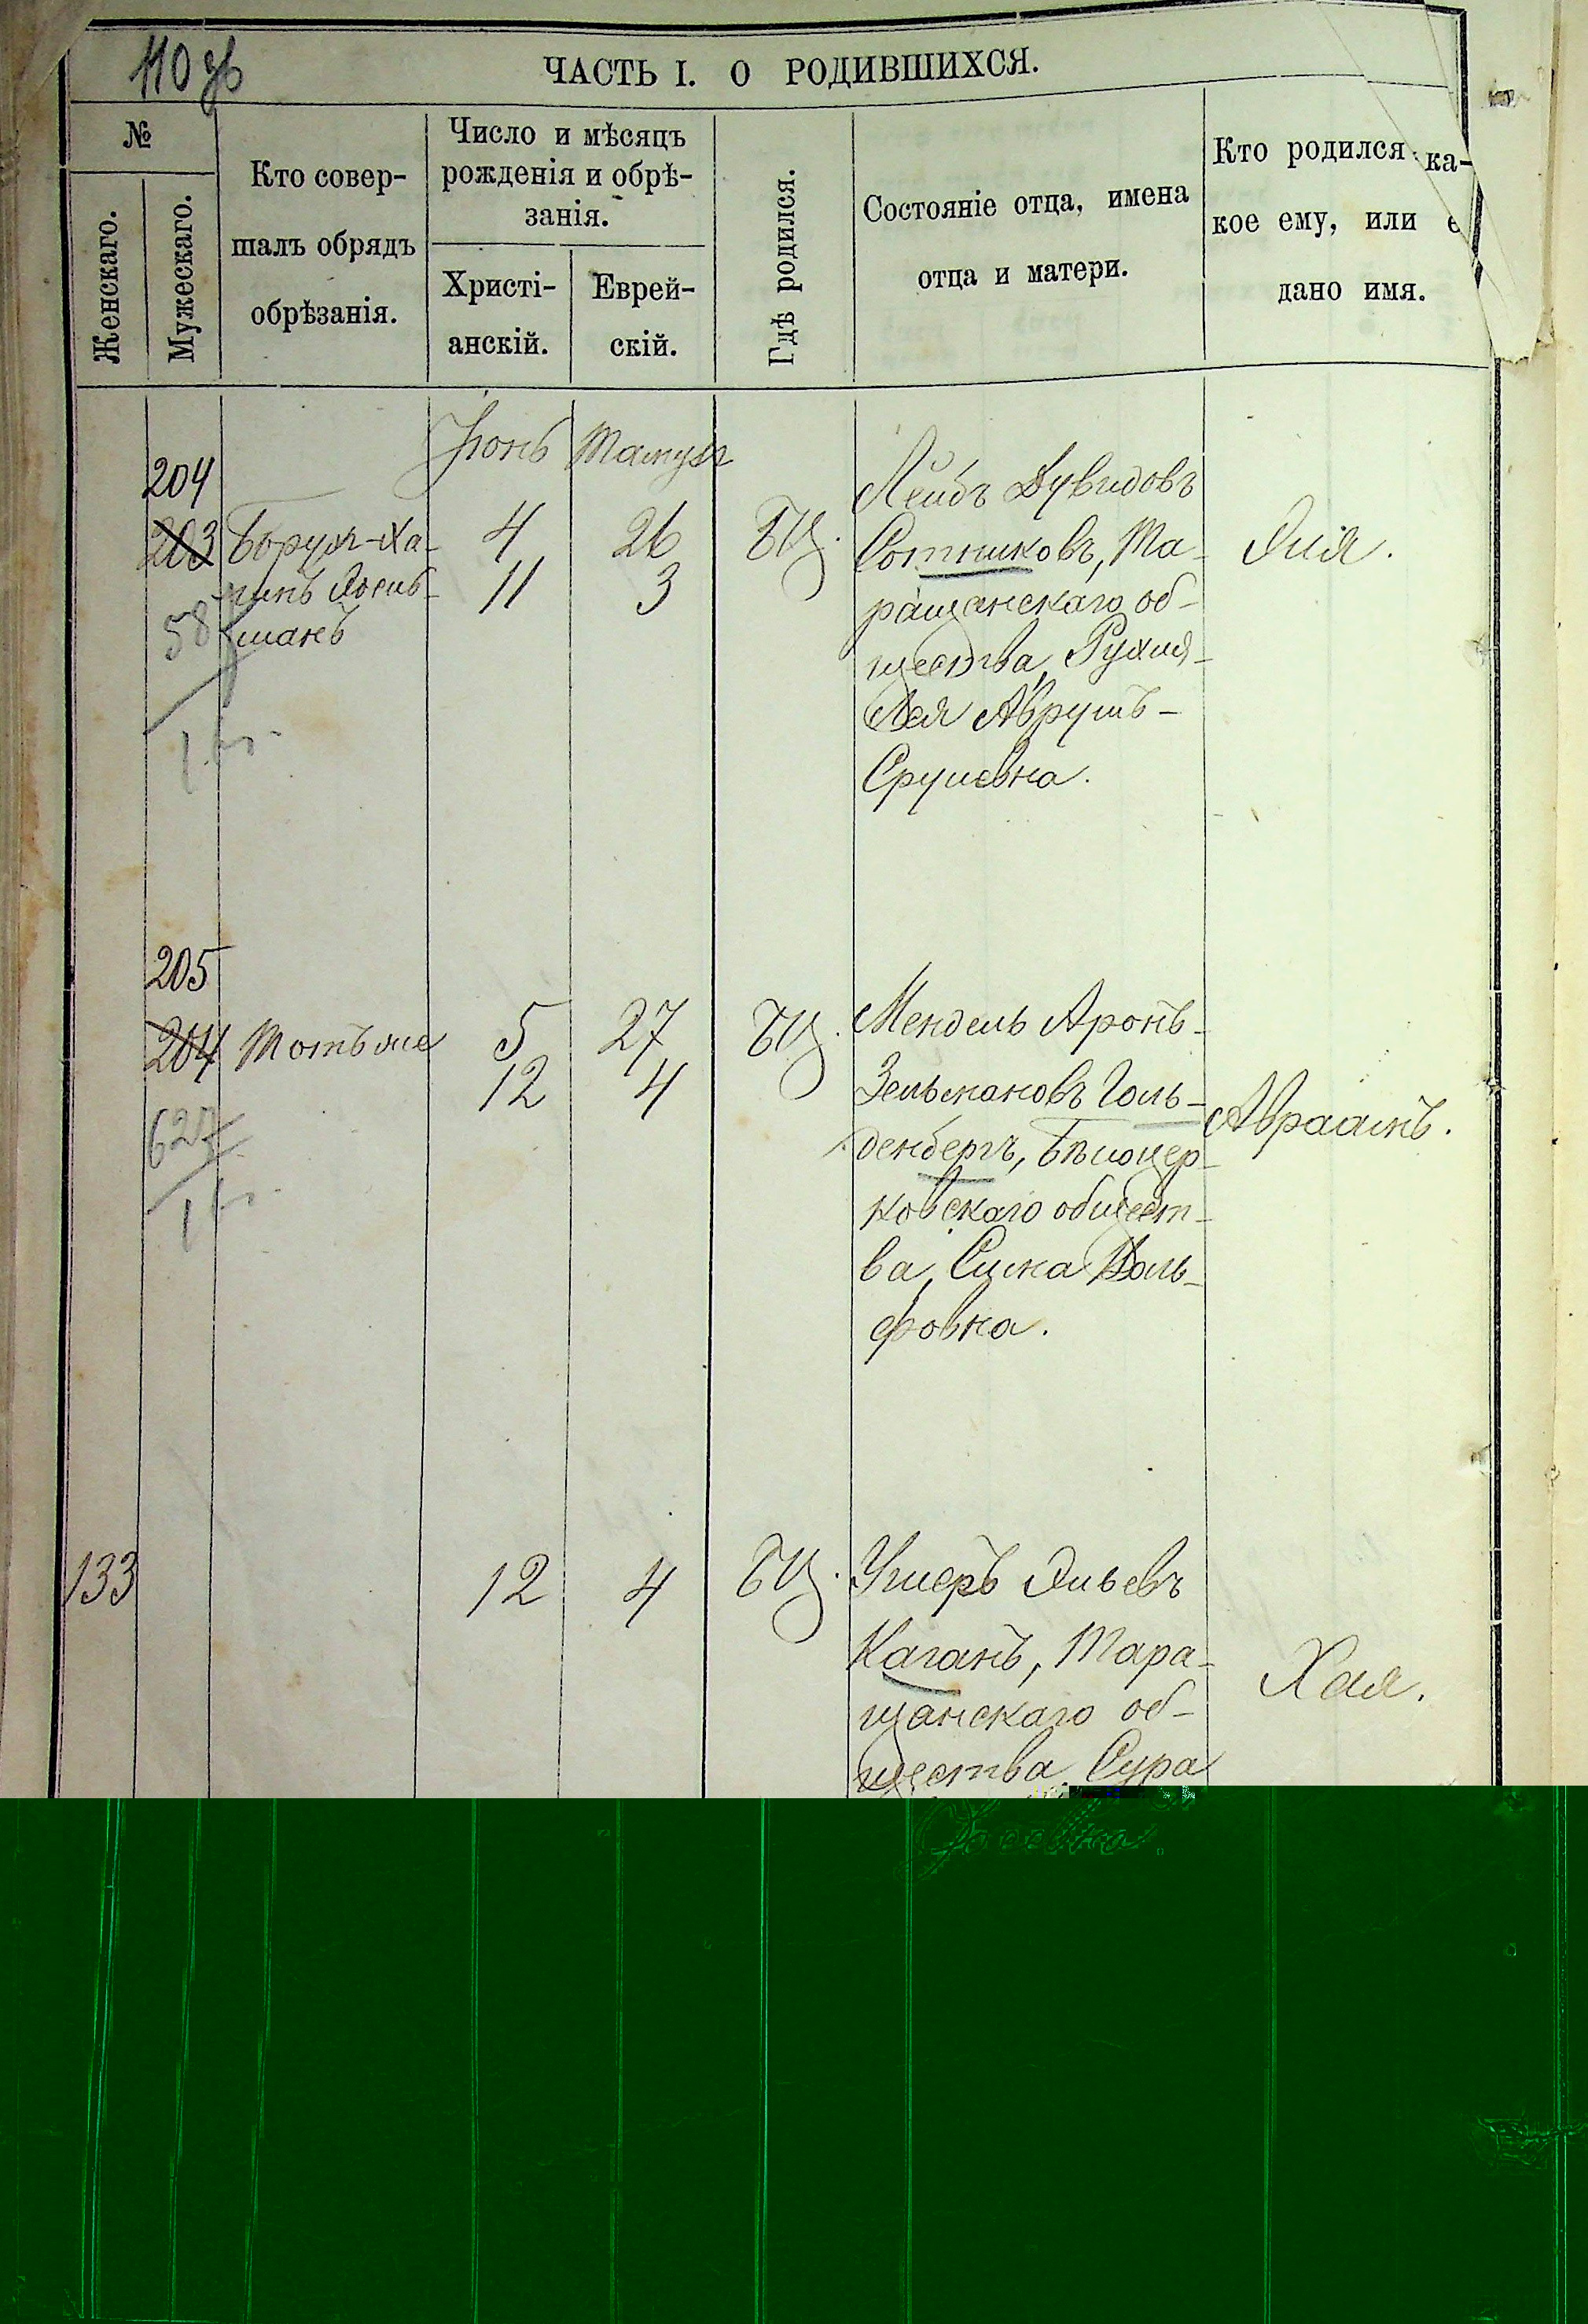 110 об
ЧАСТЬ I. О РОДИВШИХСЯ.
№
Женскаго.
Мужескаго.
Кто совер-
шалъ обрядъ
обрѣзанія.
Число и мѣсяцъ
рожденія и обрѣ-
занія.
Христі-
анскій.
Еврей-
скій.
Гдѣ родился.
Состояніе отца, имена
отца и матери.
Кто родился ка-
кое ему, или е
дано имя.
Іюнь
204
203
58
Борухъ-Ха-
4
11
26
3
БЦ.
Лейбъ Дувидовъ
Сотниковъ, Та-
ращанскаго об-
щества, Рухля-
Лея Аврумъ-
Срулевна.
Элія.
205
204
Мотьлие
5
12
27
4
БЦ.
Мендель Аронъ-
Зельмановъ Голь-
денбергъ, Бѣлоцер-
ковскаго общест-
ва, Сима Воль-
фовна.
Авраамъ.
133
12
4
БЦ.
Ушеръ Эльевъ
Каганъ, Тара-
щанскаго об-
щества, Сура
Хая.